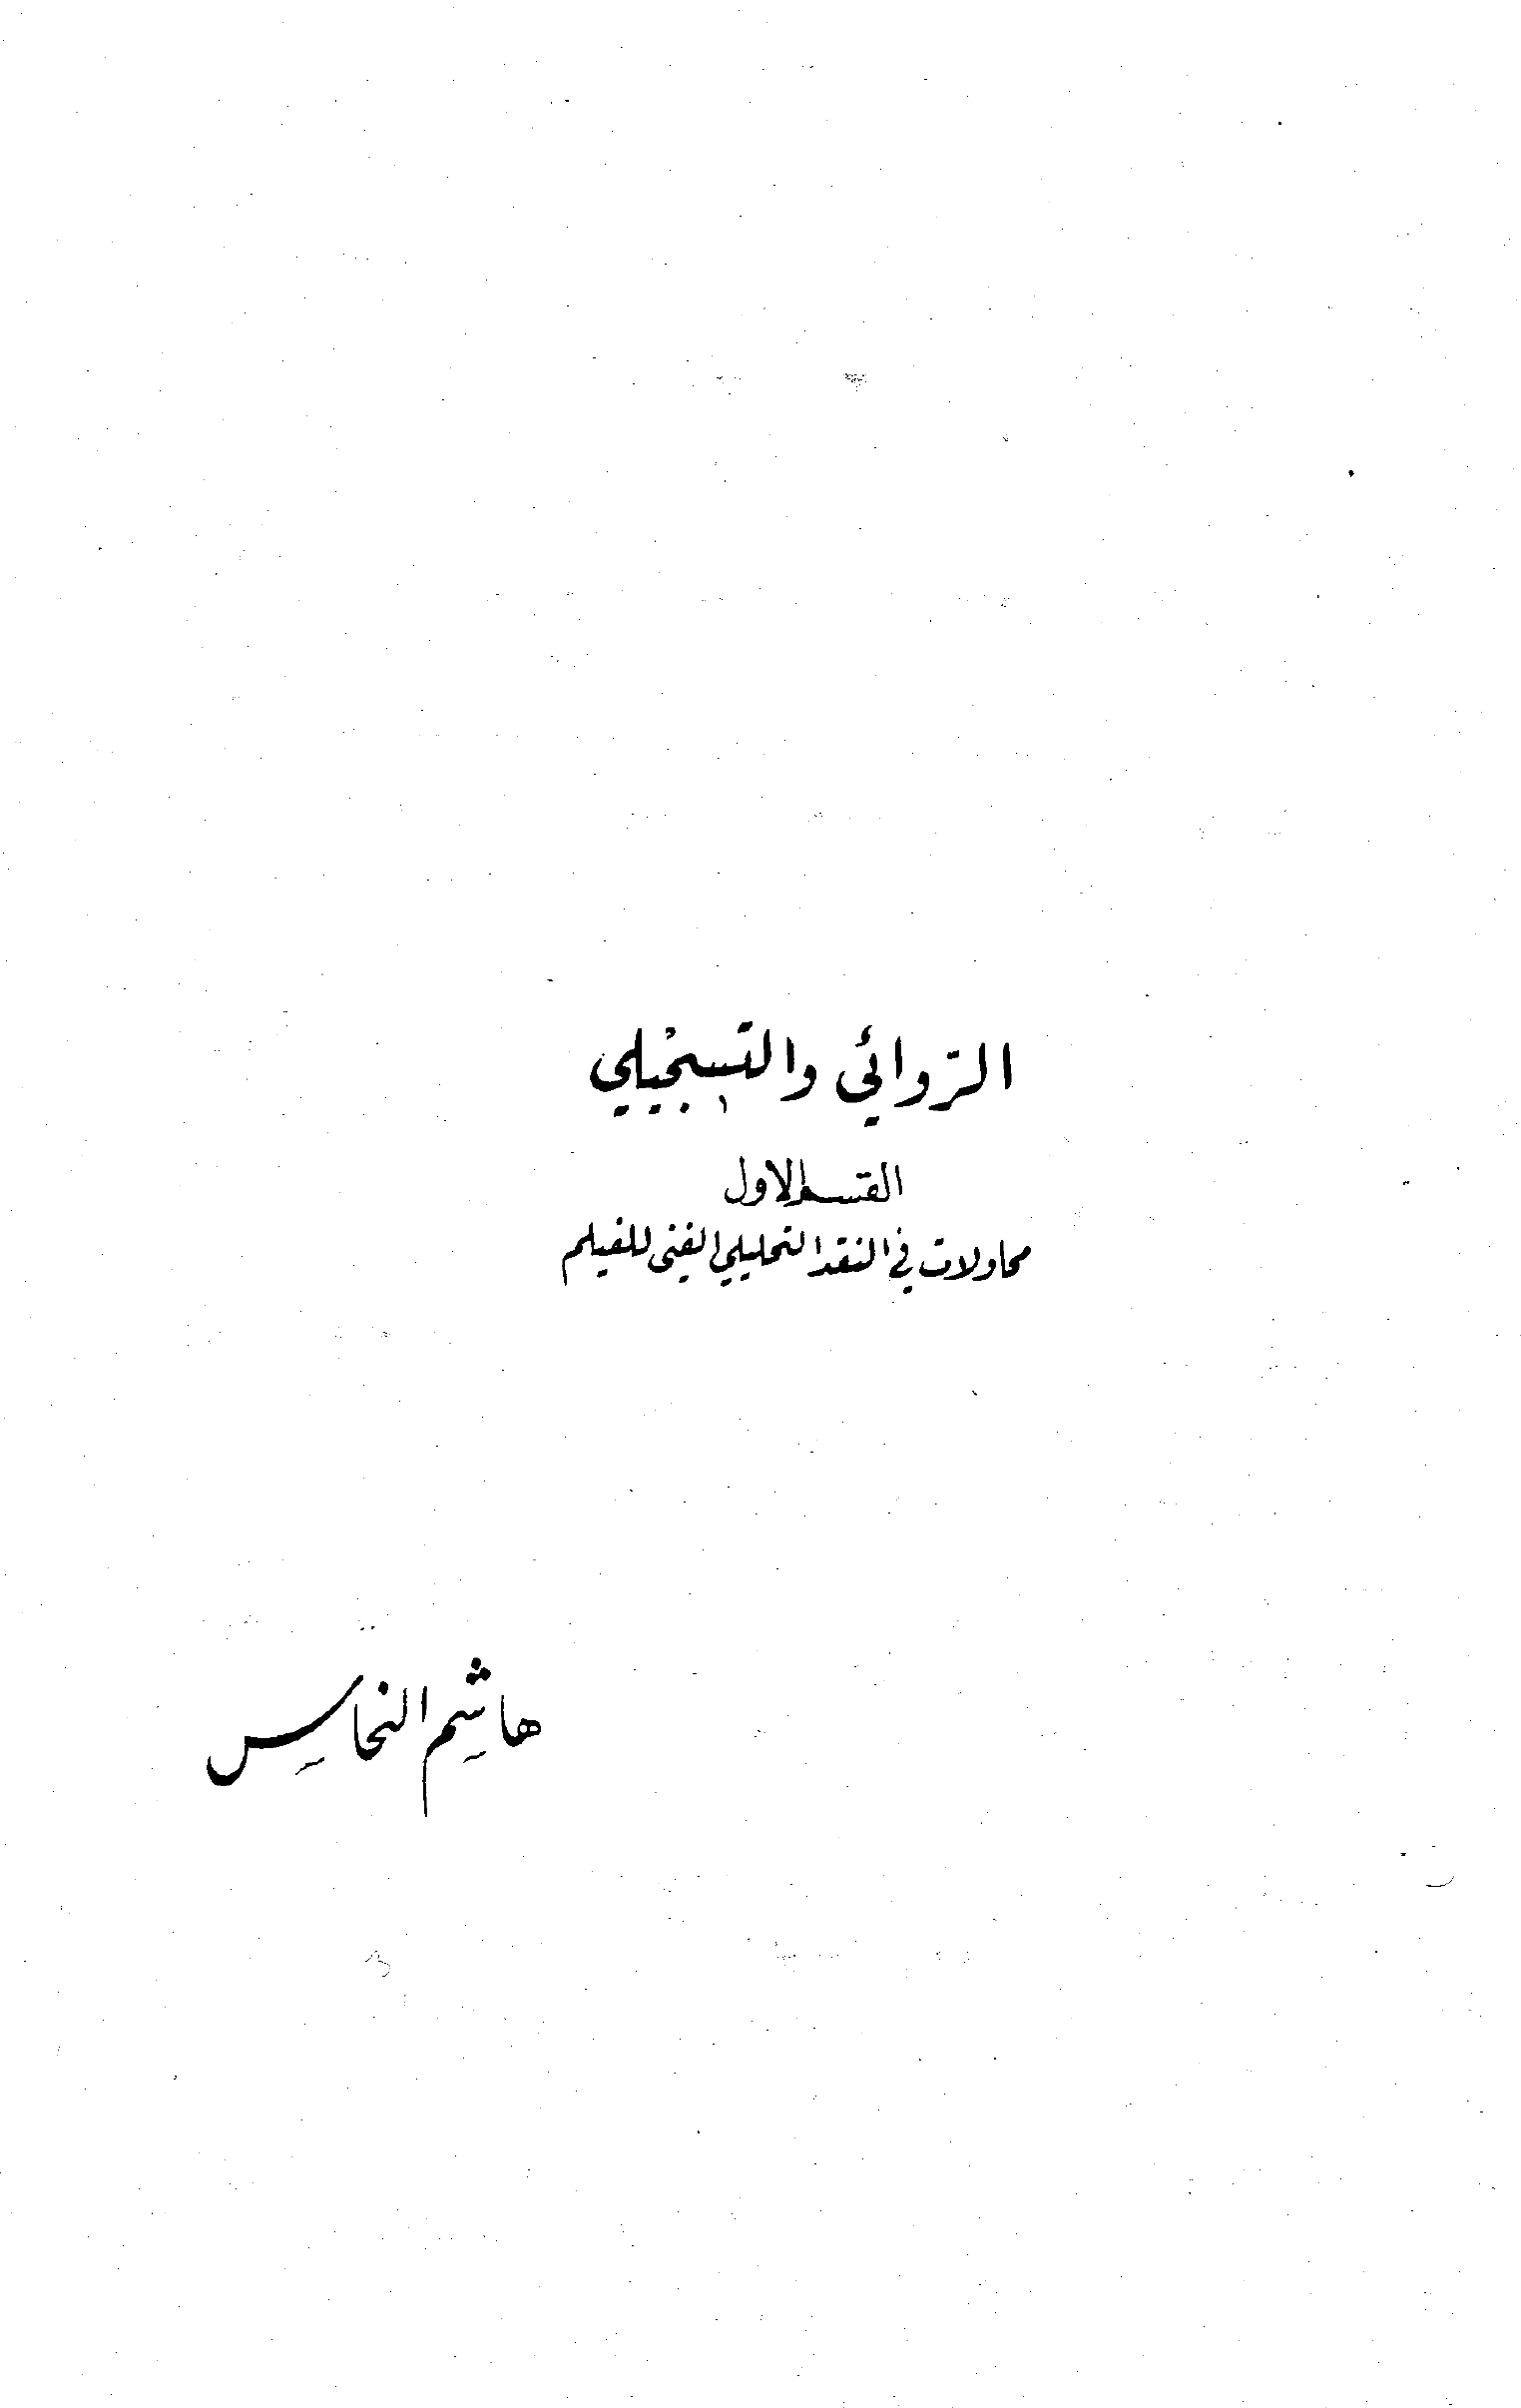 الروائي والتسجيلي
القسم الاول
محاولات في النقد التحليلي الفني للفيلم
هاشم النحاس